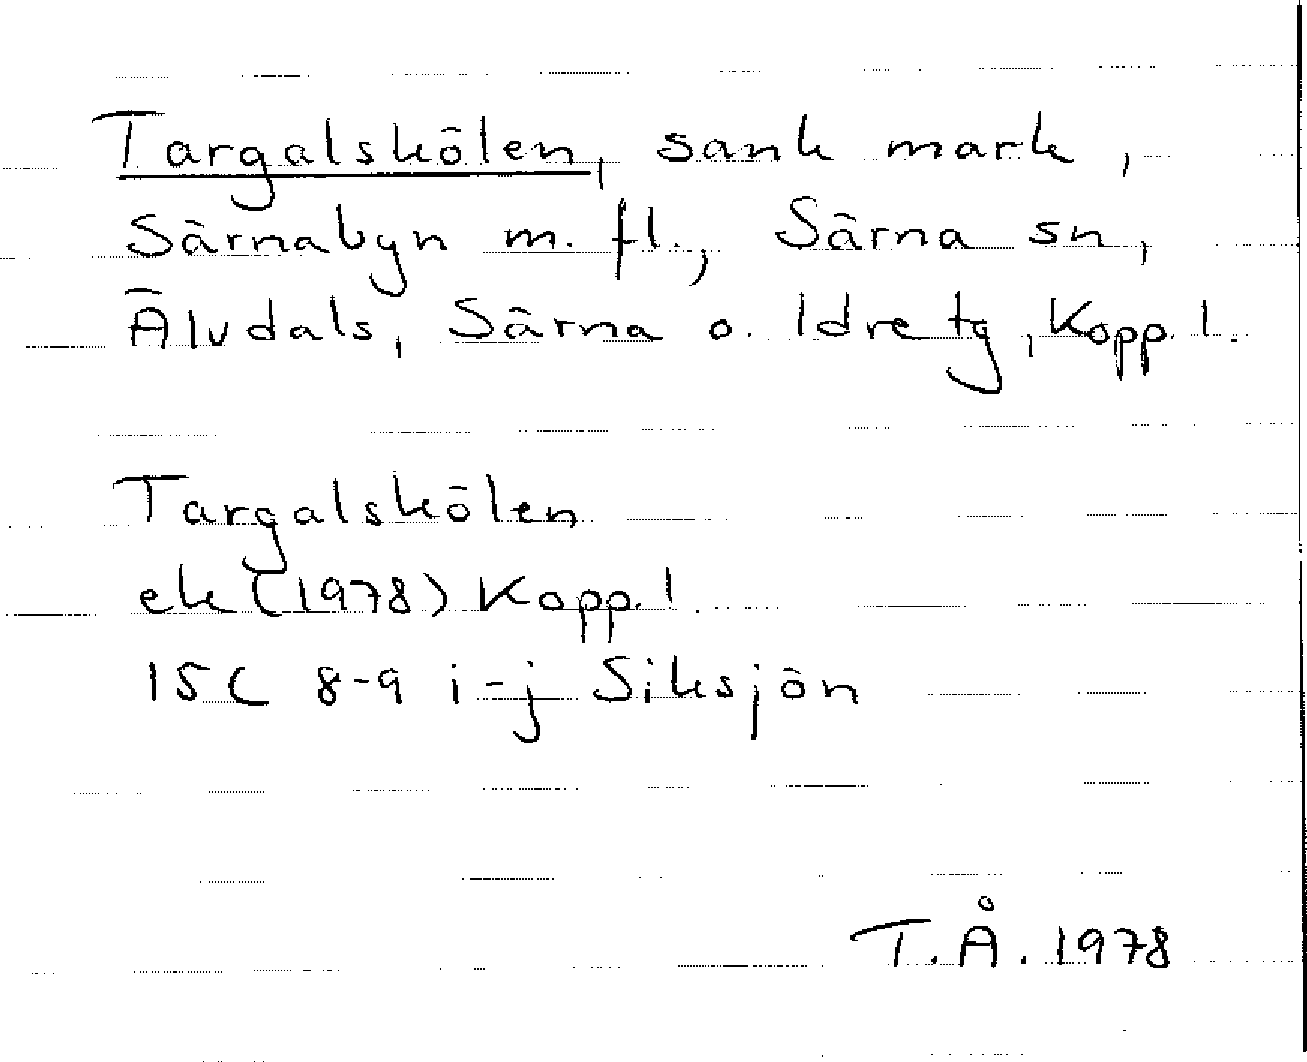 Targalskölen, sank mark,
Särnabyn m. fl., Särna sn,
Älvdals, Särna o. Idre tg, Kopp. l.
Targalskölen
ek (1978) Kopp. l
15C 8-9 i-j Siksjön
T.Å. 1978